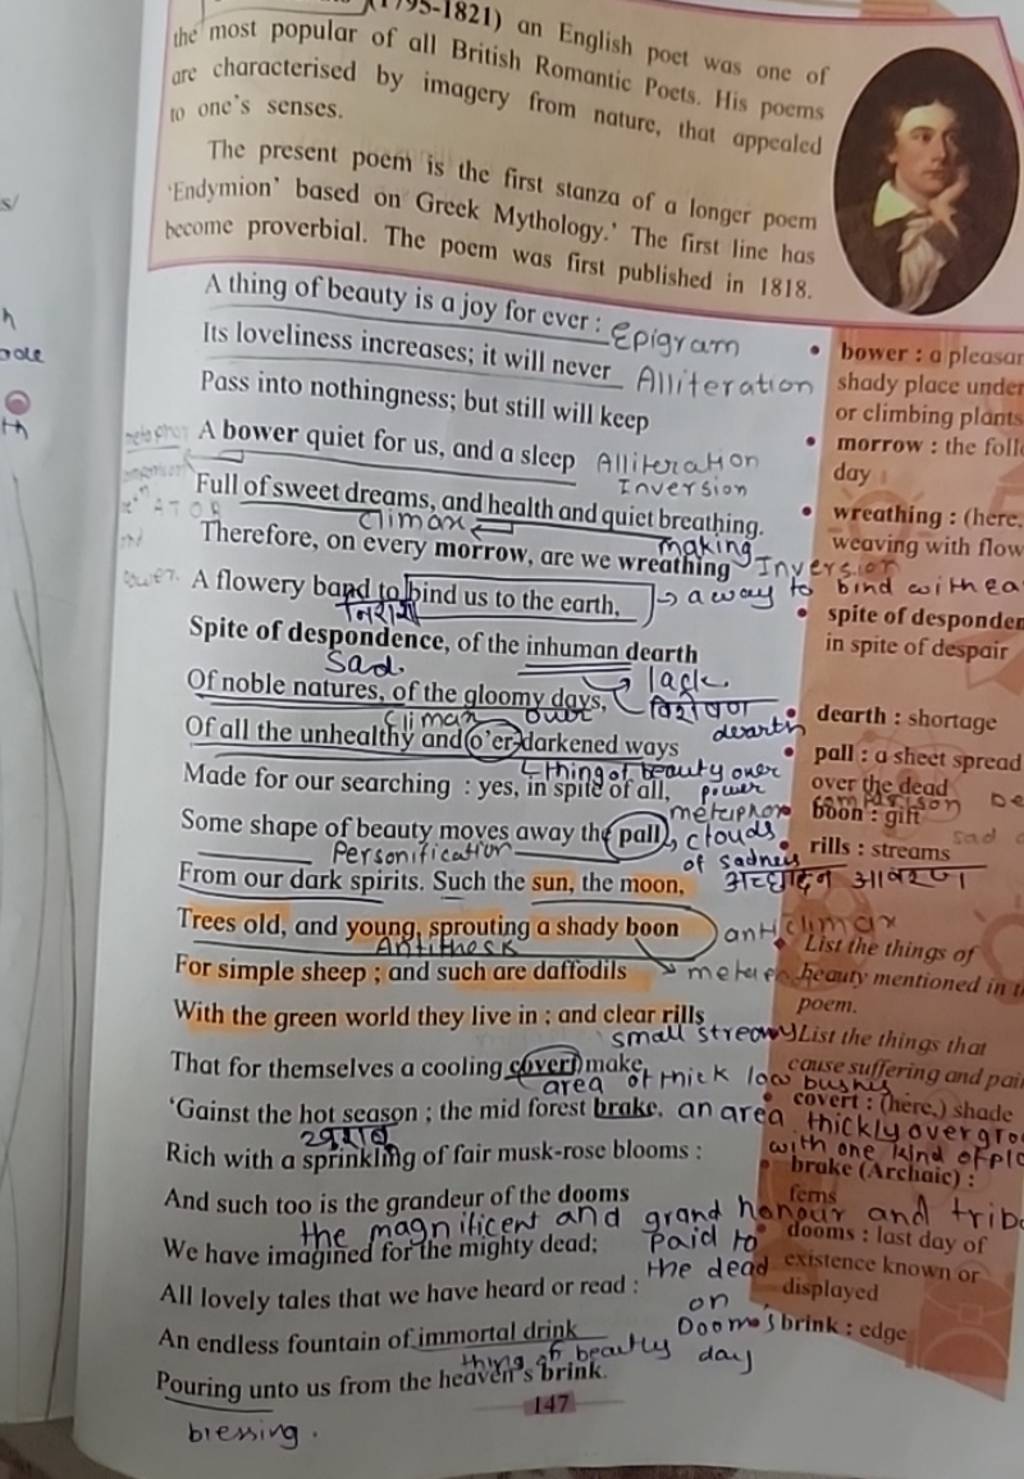 1795-1821) an English poet was one of
the most popular of all British Romantic Poets. His poems
are characterised by imagery from nature, that appealed
to one's senses.
The present poem is the first stanza of a longer poem
'Endymion' based on Greek Mythology.' The first line has
become proverbial. The poem was first published in 1818.
A thing of beauty is a joy for ever : Epigram
Its loveliness increases; it will never Alliteration
Pass into nothingness; but still will keep
A bower quiet for us, and a sleep Alliteration
Inversion
Full of sweet dreams, and health and quiet breathing.
climax making
Therefore, on every morrow, are we wreathing Inversion
A flowery band to bind us to the earth, → a way to bind with ea
निराशा
Spite of despondence, of the inhuman dearth
sad. lack
Of noble natures, of the gloomy days, विशेषण
climax over dearth
Of all the unhealthy and o'er-darkened ways
thing of beauty over
Made for our searching : yes, in spite of all, power
metaphor
Some shape of beauty moves away the pall, clouds
Personification of sadness
From our dark spirits. Such the sun, the moon,
Trees old, and young, sprouting a shady boon anticlimax
Antithesis
For simple sheep ; and such are daffodils
With the green world they live in ; and clear rills
small streams
That for themselves a cooling covert make
area of thick low bushes
'Gainst the hot season ; the mid forest brake, an area thickly overgro
with one kind of
Rich with a sprinkling of fair musk-rose blooms :
And such too is the grandeur of the dooms
the magnificent and grand honour and
We have imagined for the mighty dead; paid to
the dead
All lovely tales that we have heard or read :
on
An endless fountain of immortal drink Dooms
thing of beauty day
Pouring unto us from the heaven's brink.
blessing.
147
• bower : a pleasan
shady place under
or climbing plants
• morrow : the foll
day
• wreathing : (here,
weaving with flow
• spite of desponden
in spite of despair
• dearth : shortage
• pall : a sheet spread
over the dead
comparison
boon : gift
sad
• rills : streams
आवरण
List the things of
beauty mentioned in t
poem.
List the things that
cause suffering and pai
• covert : (here,) shade
• brake (Archaic) :
ferns
• dooms : last day of
existence known or
displayed
brink : edge